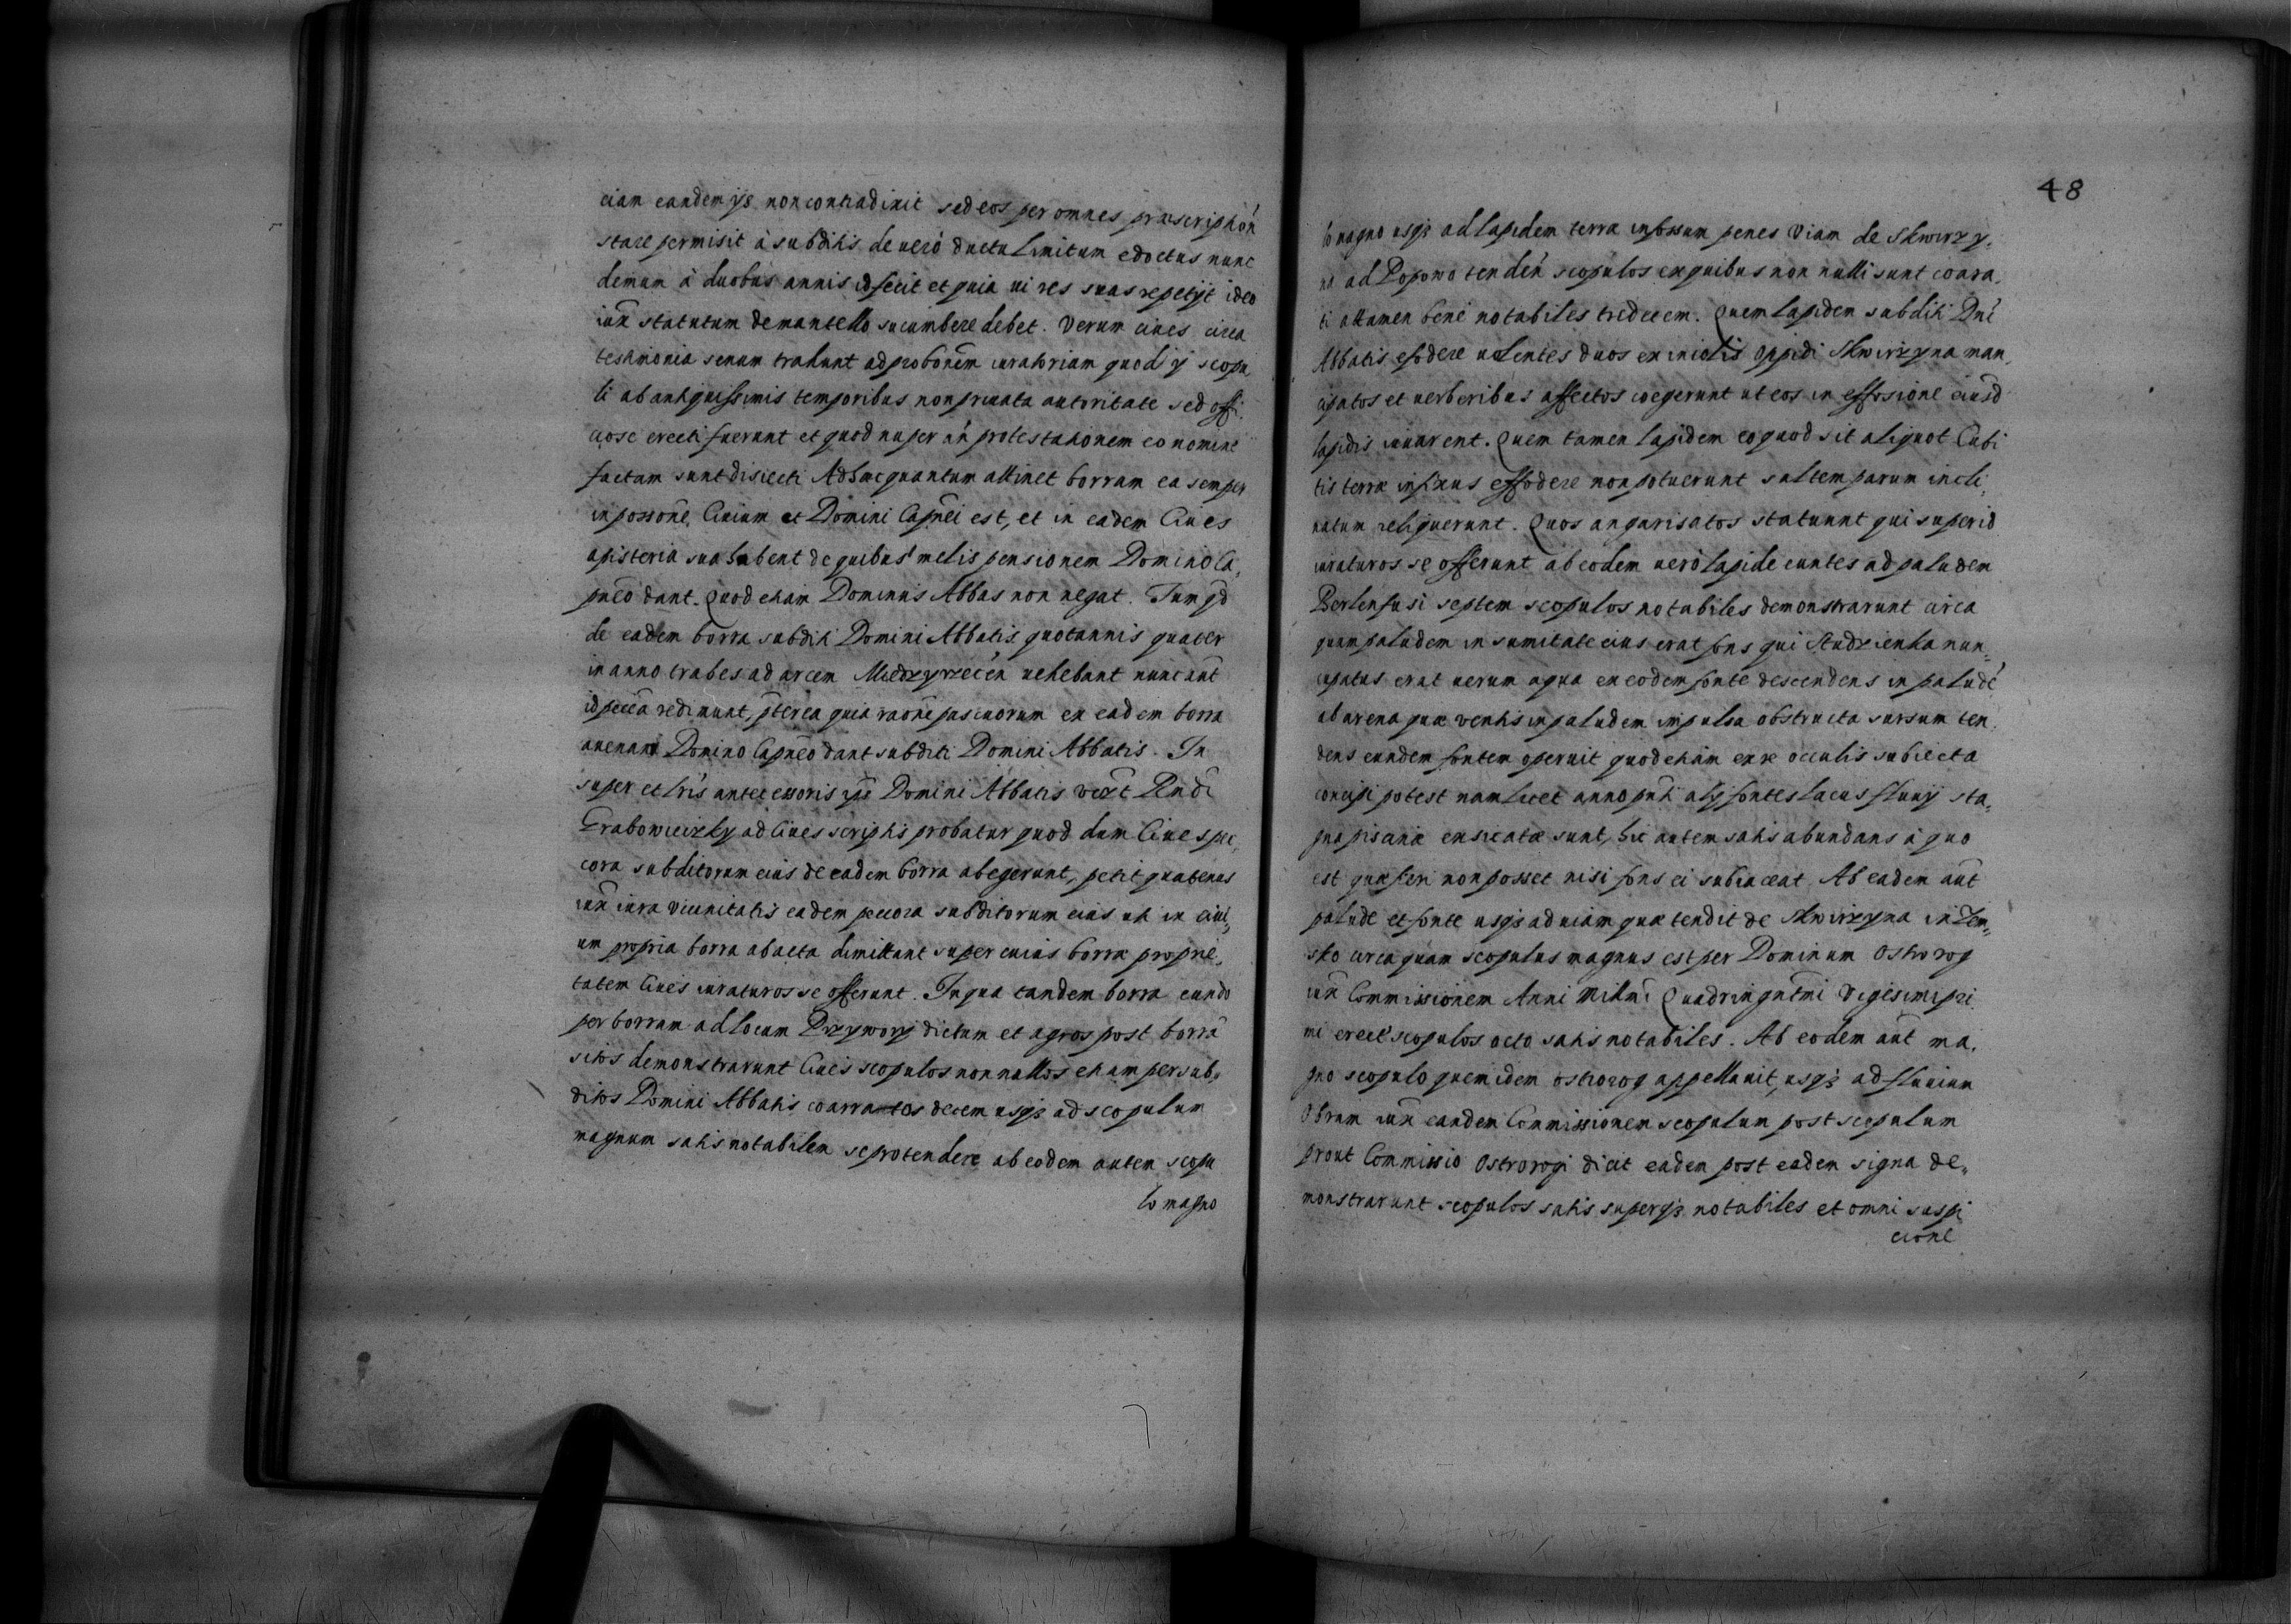 eiam eandem ijs non contradixit sed eos per omnes praescriptōn
stare permisit à subditis de uero ductu limitum edoctus nunc
demum à duobus annis id fecit et quia ui res suas repetijt ideo
iux̄ statutum de mantello sucumbere debet. Verum ciues circa
testimonia senum trahunt ad probōnem iuratoriam quod ij scopu
li ab antiquissimis temporibus non priuata autoritate sed offi-
ciose erecti fuerunt et quod nuper an̄ protestationem eo nomine
factam sunt disiecti Ad haec quantum attinet borram ea semper
in possōne Ciuium et Domini Capn̄ei est, et in eadem Ciues
apisteria sua habent de quibus mellis pensionem Domino Ca-
pnēo dant. Quod etiam Dominus Abbas non negat. Tum qd
de eadem borra subditi Domini Abbatis quotannis quater
in anno trabes ad arcem Miedzyrzecēn uehebant nunc aūt
id pecūa redimunt, pterea quia raōne pascuorum ex eadem borra
auenam Domino Capnēo dant subditi Domini Abbatis. In
super et lrīs antecessoris ipīs Domini Abbatis
Grabowieczky ad Ciues scriptis probatur quod dum Ciues pec-
cora subditorum eius de eadem borra abegerunt, petit quatenus
iux̄ iura vicinitatis eadem peccora subditorum eius uti in ciui-
um propria borra abacta dimittant super cuius borrae proprie-
tatem Ciues iuraturos se offerunt. In qua tandem borra eundo
per borram ad locum Przywory dictum et agros post borrā
sitos demonstrarunt Ciues scopulos nonnullos etiam per sub-
ditos Domini Abbatis coarratos decem usq₃ ad scopulum
magnum satis notabilem se protendere ab eodem autem scopu
lo magno
48
lo magno usq₃ ad lapidem terrae infossum penes viam de Skwirzy-
na ad Popowo tendēn scopulos ex quibus non nulli sunt coara-
ti attamen bene notabiles tredecem. Quem lapidem subditi Dnī
Abbatis efodere uolentes duos ex incolis oppidi Skwirzyna man-
cipatos et uerberibus affectos coegerunt ut eos in effosione eiusd
lapidis iuuarent. Quem tamen lapidem eo quod sit aliquot Cubi
tis terrae infixus effodere non potuerunt saltem parum incli-
natum reliquerunt. Quos angarisatos statuunt qui super id
iuraturos se offerunt ab eodem uero lapide euntes ad paludem
Berlenfusi septem scopulos notabiles demonstrarunt circa
quam paludem in sumitate eius erat fons qui Studzienka nun-
cupatus erat uerum aqua ex eodem fonte descendens in paludē
ab arena quae ventis in paludem impulsa obstructa sursum ten-
dens eundem fontem operuit quod etiam ex re occulis subiecta
concipi potest nam licet anno pn̄ti alij fontes lacus fluuij sta-
gna piscinae exsicatae sunt, hic autem satis abundans à quo
est quae fieri non posset nisi fons ei subiaceat. Ab eadem aūt
palude et fonte usq₃ ad uiam quae tendit de Skwirzyna in Zem-
sko circa quam scopulus magnus est per Dominum Ostrorog
iux̄ Commissionem Anni Millm̄i Quadringntm̄i Vigesimi pri-
mi erect' scopulos octo satis notabiles. Ab eodem aūt ma-
gno scopulo quem idem ostrorog appellauit, usq₃ ad fluuium
Obram iux̄ eandem Commissionem scopulum post scopulum
prout Commissio Ostrorogi dicit eadem post eadem signa de-
monstrarunt scopulos satis superq₃ notabiles et omni suspi
cione